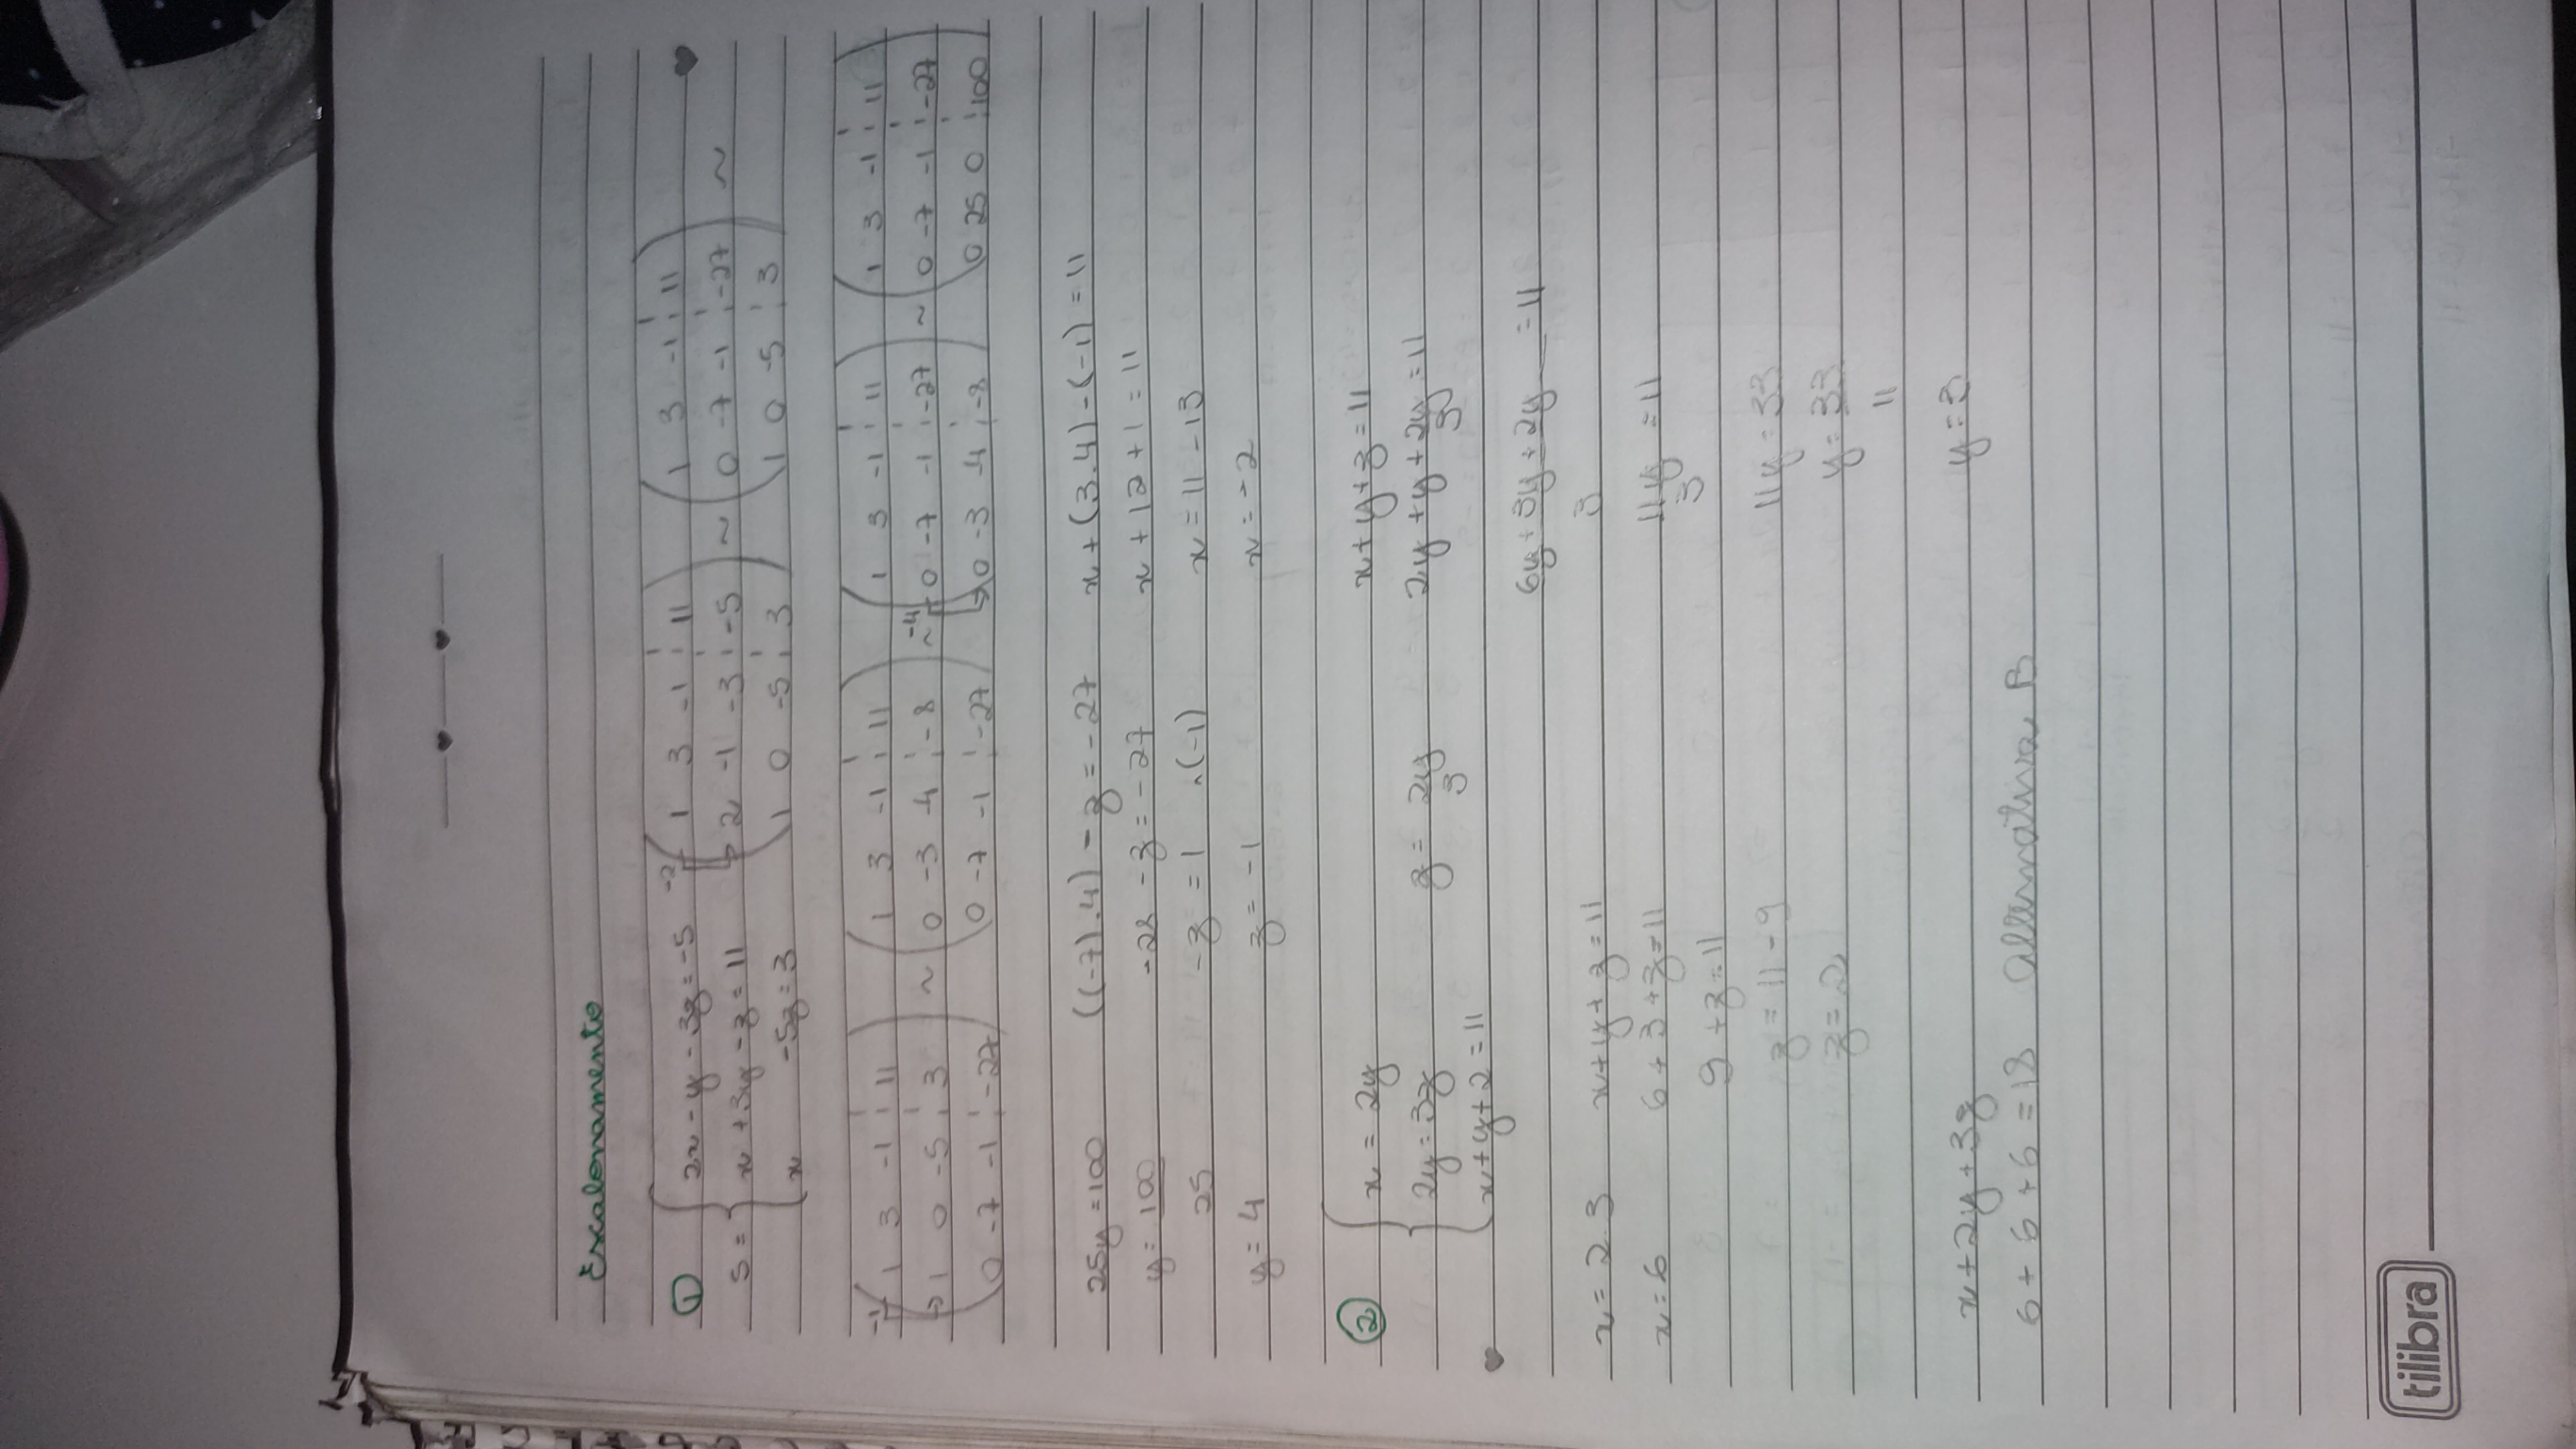 Escalonamento
①
S = { 2x - y - 3z = -5
x + 3y - z = 11
x -5z = 3
-2 ( 1 3 -1 ¦ 11
2 -1 -3 ¦ -5
1 0 -5 ¦ 3 ) ~
( 1 3 -1 ¦ 11
0 -7 -1 ¦ -27
1 0 -5 ¦ 3 ) ~
-1 ( 1 3 -1 ¦ 11
1 0 -5 ¦ 3
0 -7 -1 ¦ -27 ) ~
( 1 3 -1 ¦ 11
0 -3 -4 ¦ -8
0 -7 -1 ¦ -27 ) ~
-4 ( 1 3 -1 ¦ 11
0 -7 -1 ¦ -27
0 -3 -4 ¦ -8 ) ~
( 1 3 -1 ¦ 11
0 -7 -1 ¦ -27
0 25 0 ¦ 100 )
25y = 100
y = 100
25
y = 4
((-7).4) - z = -27
-28 - z = -27
-z = 1 .(-1)
z = -1
x + (3.4) - (-1) = 11
x + 12 + 1 = 11
x = 11 - 13
x = -2
②
{ x = 2y
2y = 3z
x + y + 2 = 11
z = 2y
3
x + y + z = 11
2y + y + 2y = 11
3
6y + 3y + 2y = 11
3
11y = 11
3
11y = 33
y = 33
11
y = 3
x = 2.3
x = 6
x + y + z = 11
6 + 3 + z = 11
9 + z = 11
z = 11 - 9
z = 2
x + 2y + 3z
6 + 6 + 6 = 18 alternativa B
tilibra